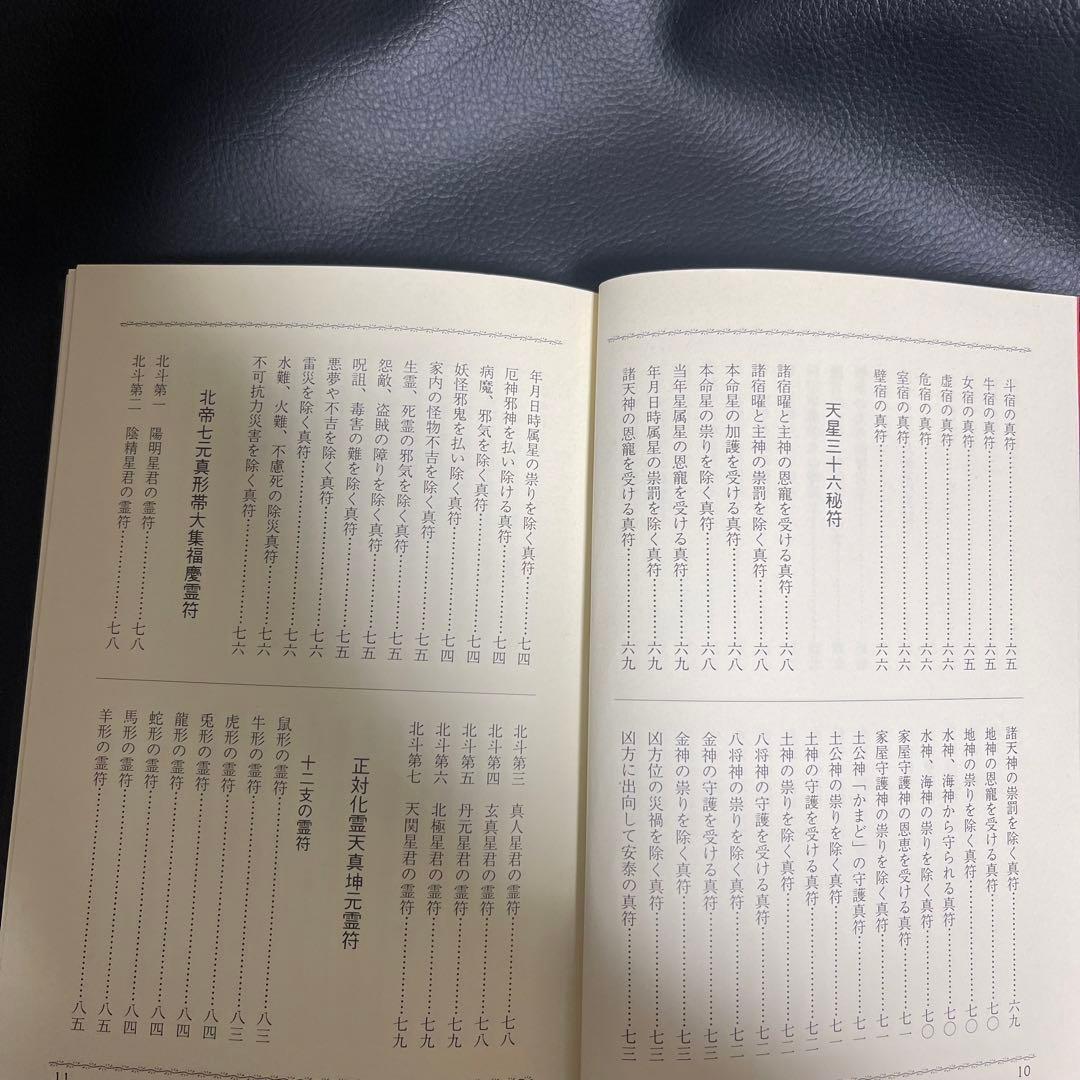 斗宿の真符…………六五
牛宿の真符…………六五
女宿の真符…………六五
虚宿の真符…………六六
危宿の真符…………六六
室宿の真符…………六六
壁宿の真符…………六六
天星三十六秘符
諸宿曜と主神の恩寵を受ける真符…………六八
諸宿曜と主神の祟罰を除く真符…………六八
本命星の加護を受ける真符…………六八
本命星の祟りを除く真符…………六八
当年星属星の恩寵を受ける真符…………六九
年月日時属星の祟罰を除く真符…………六九
諸天神の恩寵を受ける真符…………六九
諸天神の祟罰を除く真符…………六九
地神の恩寵を受ける真符…………七〇
地神の祟りを除く真符…………七〇
水神、海神から守られる真符…………七〇
水神、海神の祟りを除く真符…………七〇
家屋守護神の恩恵を受ける真符…………七一
家屋守護神の祟りを除く真符…………七一
土公神「かまど」の守護真符…………七一
土公神の祟りを除く真符…………七一
土神の守護を受ける真符…………七二
土神の祟りを除く真符…………七二
八将神の守護を受ける真符…………七二
八将神の祟りを除く真符…………七二
金神の守護を受ける真符…………七三
金神の祟りを除く真符…………七三
凶方位の災禍を除く真符…………七三
凶方に出向して安泰の真符…………七三
10
年月日時属星の祟りを除く真符…………七四
厄神邪神を払い除ける真符…………七四
病魔、邪気を除く真符…………七四
妖怪邪鬼を払い除く真符…………七四
家内の怪物不吉を除く真符…………七五
生霊、死霊の邪気を除く真符…………七五
怨敵、盗賊の障りを除く真符…………七五
呪詛、毒害の難を除く真符…………七五
悪夢や不吉を除く真符…………七六
雷災を除く真符…………七六
水難、火難、不慮死の除災真符…………七六
不可抗力災害を除く真符…………七六
北帝七元真形帯大集福慶霊符
北斗第一　陽明星君の霊符…………七八
北斗第二　陰精星君の霊符…………七八
北斗第三　真人星君の霊符…………七八
北斗第四　玄真星君の霊符…………七八
北斗第五　丹元星君の霊符…………七九
北斗第六　北極星君の霊符…………七九
北斗第七　天関星君の霊符…………七九
正対化霊天真坤元霊符
十二支の霊符
鼠形の霊符…………八三
牛形の霊符…………八三
虎形の霊符…………八四
兎形の霊符…………八四
龍形の霊符…………八四
蛇形の霊符…………八四
馬形の霊符…………八五
羊形の霊符…………八五
11